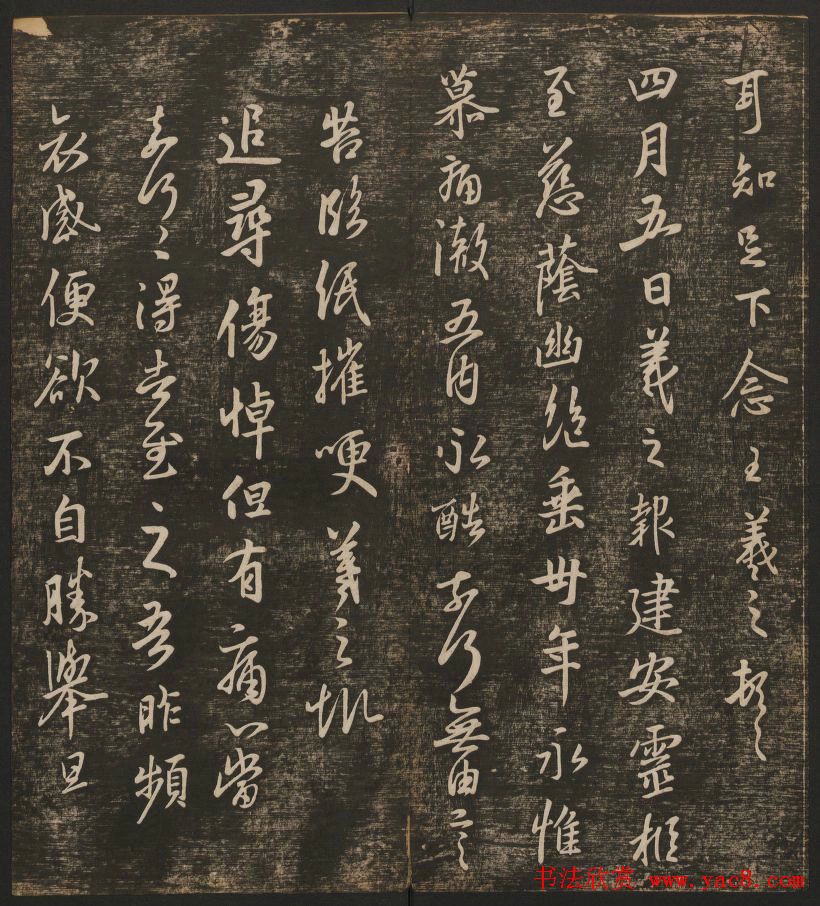 耳知足下念王羲之頓首
四月五日羲之報建安靈柩
至慈蔭幽絶垂卅年永惟
慕痛澈五內永酷奈何無由言
苦臨紙摧哽羲之報
追尋傷悼但有痛心當
奈何〻得告慰之吾昨頻
哀感便欲不自勝舉旦
书法欣赏 www.yac8.com